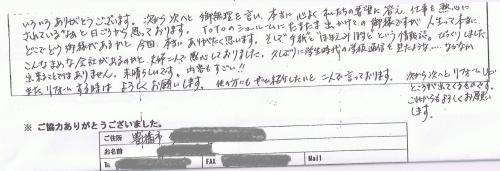 いろいろありがとうございます。次から次へと御無理を言い、本当に心よく私たちの希望に答え、仕事を熱心に
されているなあと日ごろから思っております。TOTOのショールームにたまたま出かけての御縁ですが人生って本当に
どこでどう御縁があるかと今回、本当にありがたく思います。そして手紙と"ほほえみ 1冊"という情報誌。びっくりしました。
こんなまめな会社があるのかと、夫婦二人で感心しておりました。久しぶりに学生時代の学級通信を見たような…なかなか
出来ることではありません。素晴らしいです。内容もすごい!!
またリフォームする時はよろしくお願いします。他の方にもぜひ紹介したいと二人で言っております。
次から次へとリフォームしたい
ところが出てくるものです。
これからもよろしくお願い
します。
※ ご協力ありがとうございました。
ご住所 豊橋市
お名前
Tel FAX Mail